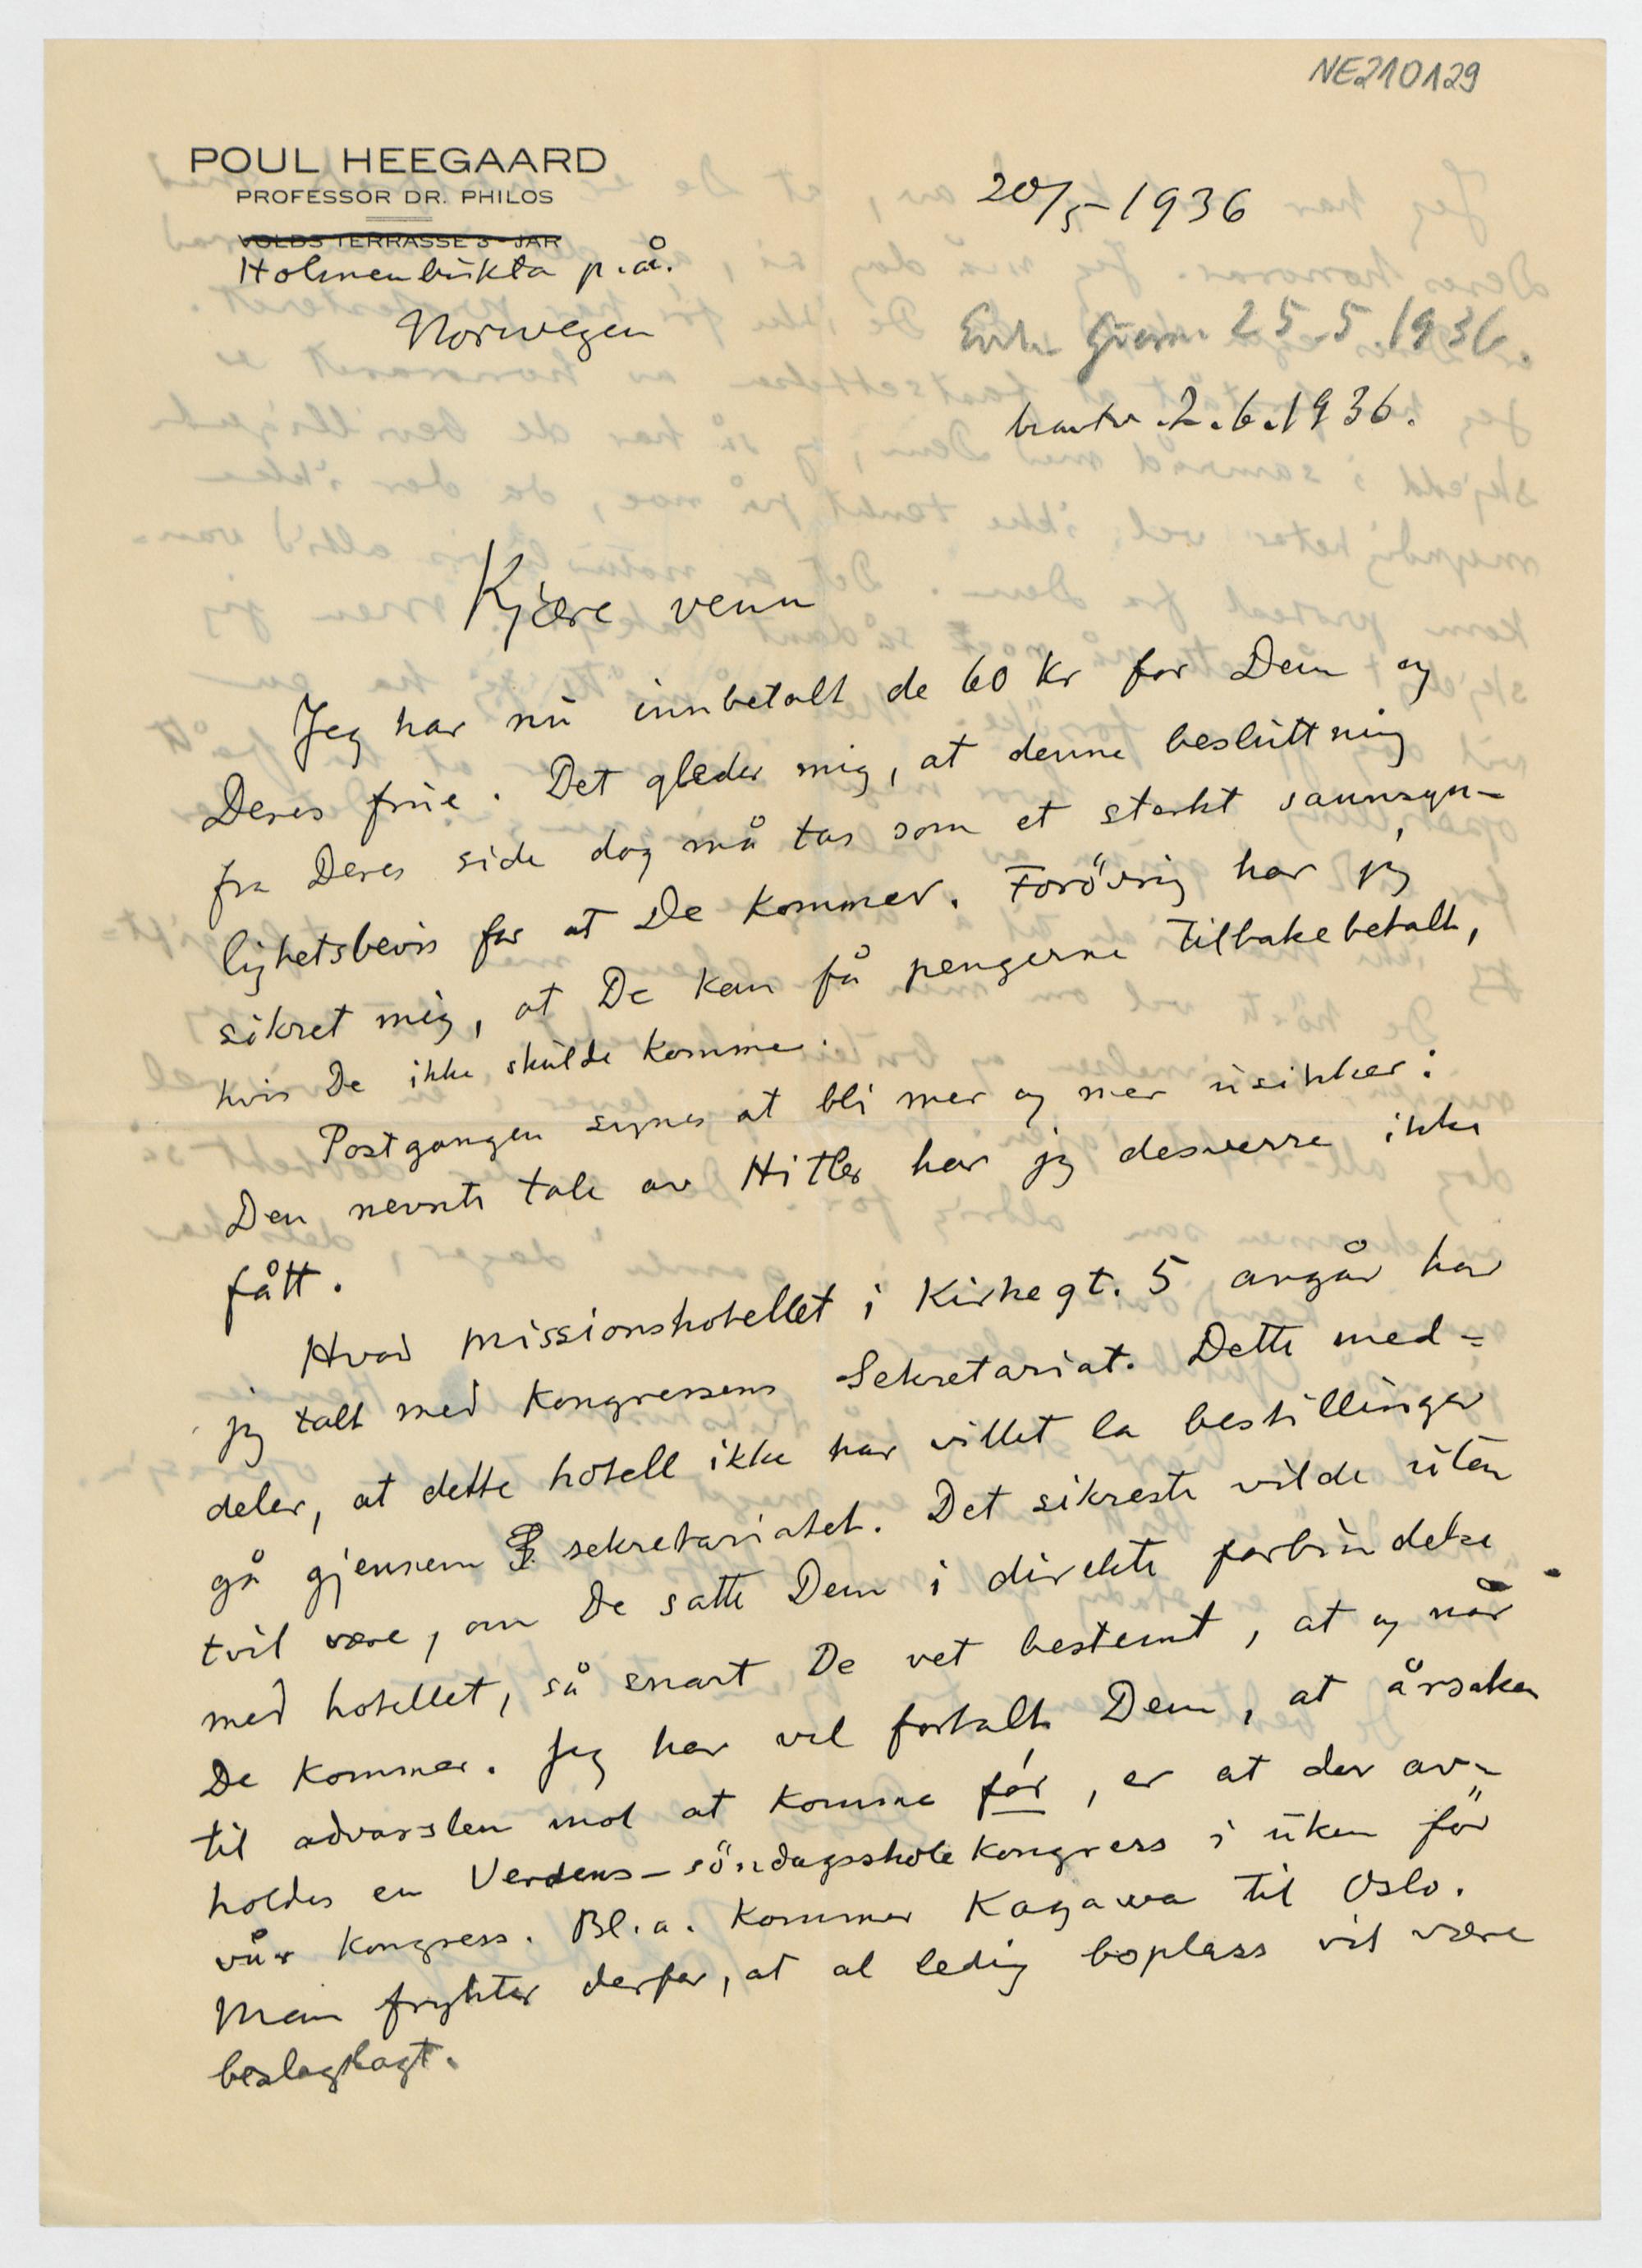 NE210129
POUL HEEGAARD
PROFESSOR DR. PHILOS
VOLDS TERRASSE 3 - JAR
Holmenbukta p.å.
Norwegen
20/5-1936
25.5.1936.
beantw. 2.6.1936.
Kjære venn
Jeg har nu innbetalt de 60 Kr for Dem og
Deres frue. Det gleder mig, at denne beslutning
fra Deres side dog må tas som et sterkt sannsyn-
lighetsbevis for at De kommer. Forövrig har jeg
sikret mig, at De kan få pengerne tilbakebetalt,
hvis De ikke skulde komme.
Postgangen synes at bli mer og mer usikker:
Den nevnte tale av Hitler har jeg desverre ikke
fått.
Hvad missionshotellet i Kirkegt. 5 angår har
jeg talt med Kongressens Sekretariat. Dette med=
deler, at dette hotell ikke har villet la bestillinger
gå gjennem sekretariatet. Det sikreste vilde uten
tvil være, om De satte Dem i direkte forbindelse
med hotellet, så snart De vet bestemt, at og når
De kommer. Jeg har vel fortalt Dem, at årsaken
til advarslen mot at komme før, er at der av-
holdes en Verdens-söndagsskole Kongress i uken för
vår Kongress. Bl.a. kommer Kagawa til Oslo.
Man frykter derfor, at al ledig boplass vil være
beslaglagt.